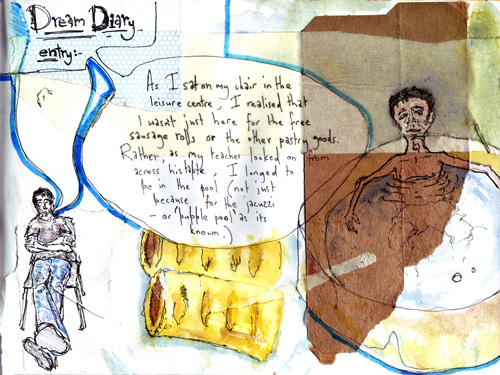 Dream Diary
entry:-
As I sat on my chair in the
leisure centre, I realised that
I wasnt just here for the free
sausage rolls or the other pastry goods.
Rather, as my teacher looked on from
across his table, I longed to
be in the pool (not just
because for the jacuzzi
– or 'bubble pool' as its
known.)